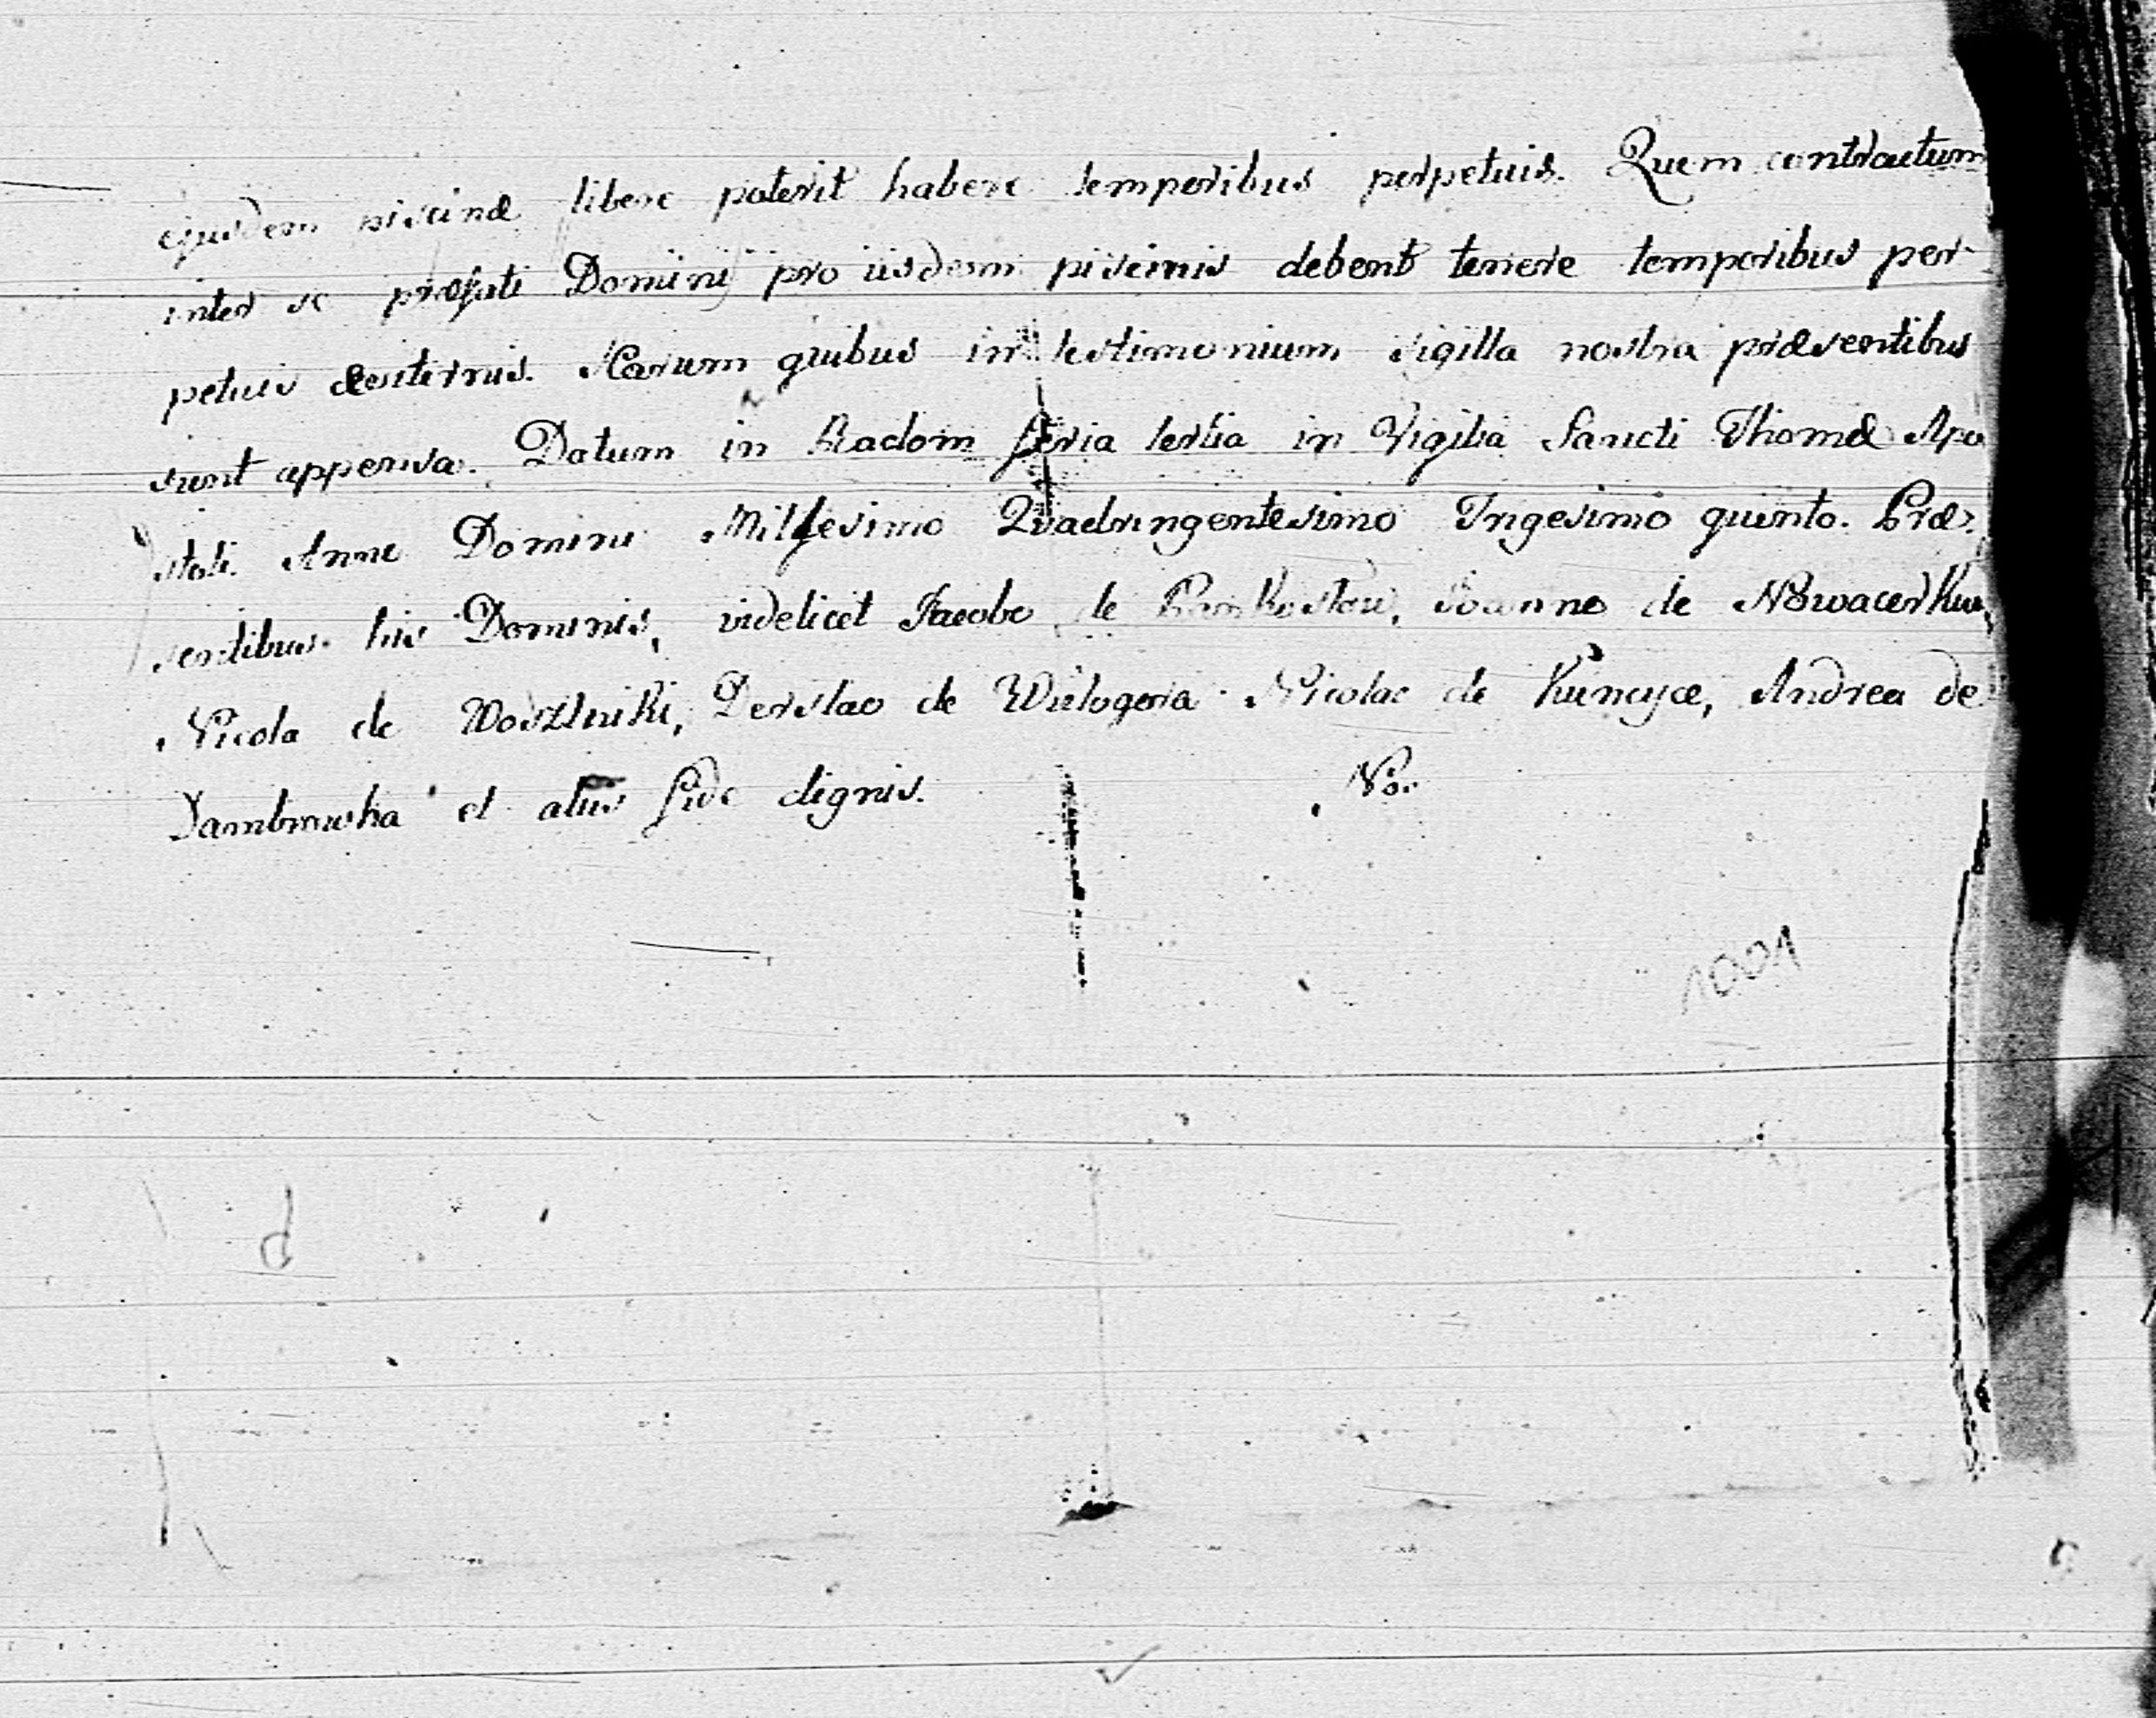 ejusdem piscinæ libere poterit habere temporibus perpetuis. Quem contractum
inter se præfati Dominij pro iisdem piscinis debent tenere temporibus per-
petuis æviternis. Harum quibus in testimonium sigilla nostra præsentibus
sunt appensa. Datum in Radom feria tertia in Vigilia Sancti Thomæ Apo
stoli. Anno Domini Millesimo Quadringentesimo Trigesimo quinto. Præ-
sentibus his Dominis, videlicet Jacobo de Joanne de
Nicola de Wosztniki, Derslao de Wielogora Nicolao de Andrea de
Dambrowka et aliis fide dignis.
1001